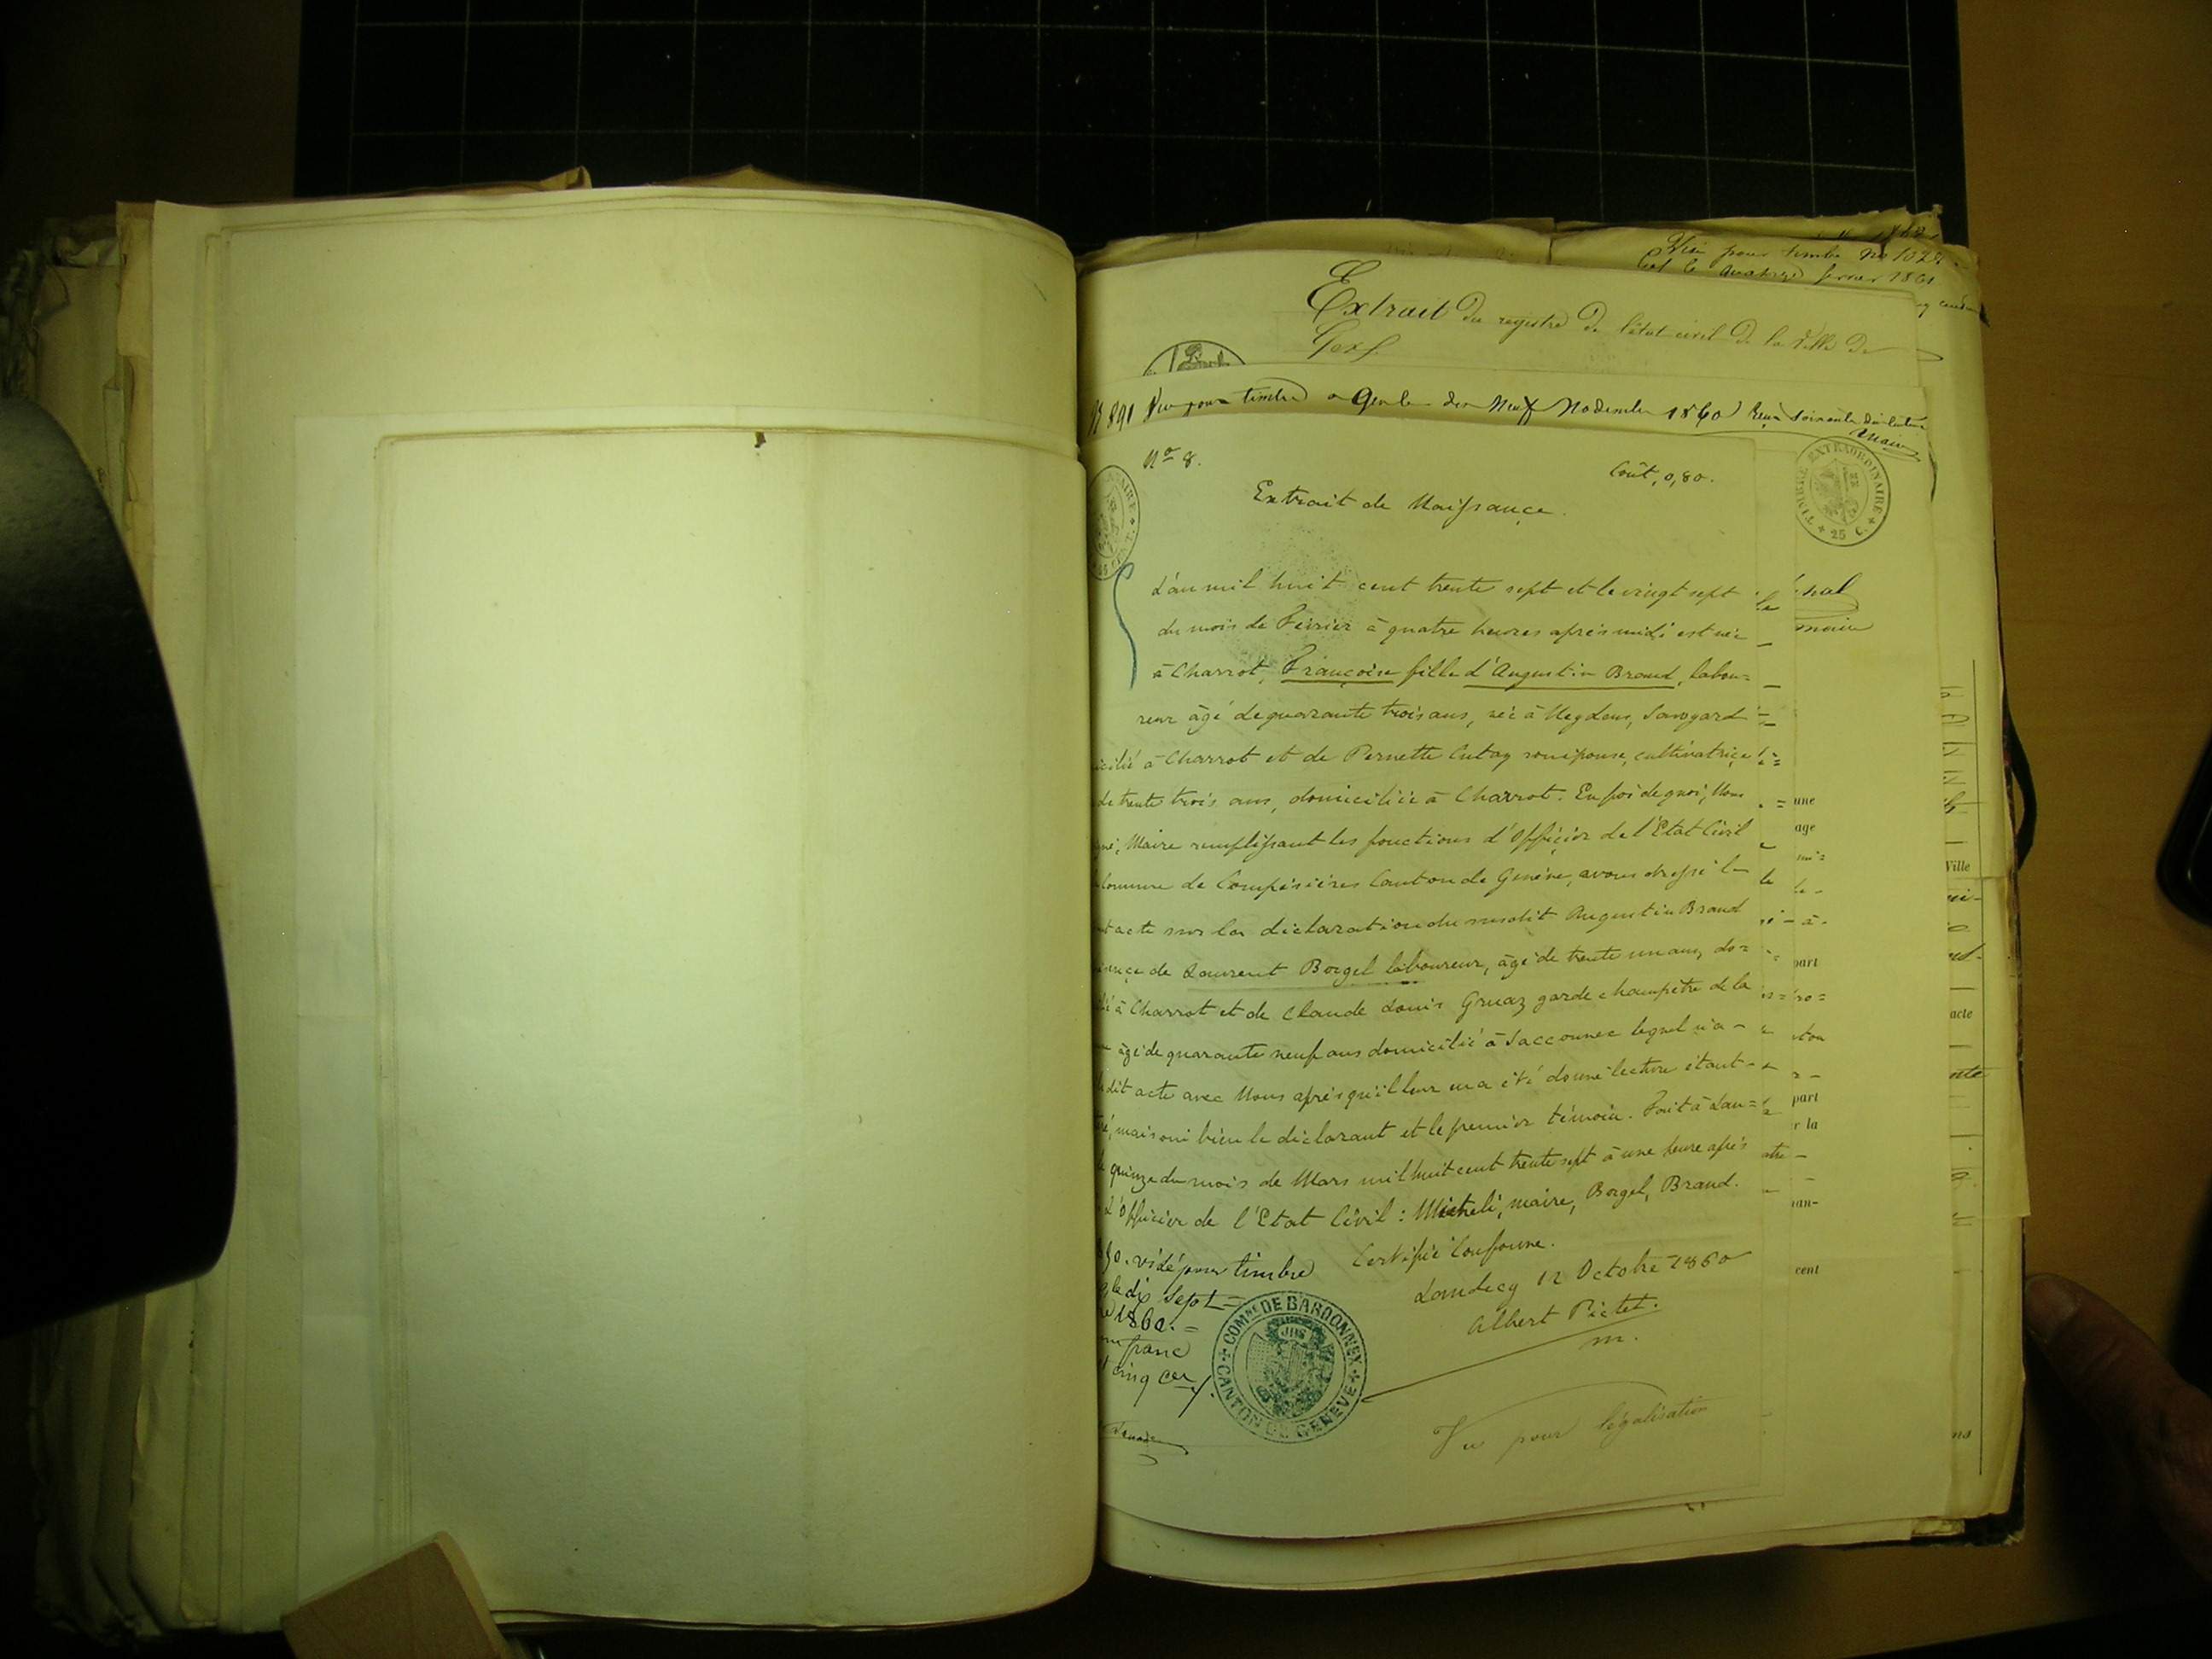 Visé pour timbre no 1029
le quatorze février 1861
Extrait du registre de l'état civil de la Ville de
Gex.
N 891 Vu pour timbre a Genève le Neuf Novembre 1860 Reçu soixante dix centimes
Nº 8.
Coût, 0,80.
TIMBRE EXTRAORDINAIRE
25 C.
Extrait de Naissance.
L'an mil huit cent trente sept et le vingt sept
du mois de Février à quatre heures après midi est née
à Charrot, Françoise fille d'Augustin Brand, labou=
reur âgé de quarante trois ans, né à Neydens, Savoyard
icilié à Charrot et de Pernette Cutay son épouse, cultivatrice
de trente trois ans, domiciliée à Charrot. En foi de quoi, Nous
gné, Maire remplissant les fonctions d'Officier de l'Etat Civil
Commune de Compésières Canton de Genève, avons dressé le
nt acte sur la déclaration du susdit Augustin Brand
ésence de Laurent Borgel laboureur, âgé de trente un ans, do=
lié à Charrot et de Claude Louis Gruaz garde champêtre de la
âgé de quarante neuf ans domicilié à Sacconnex lequel n'a
dit acte avec Nous après qu'il leur en a été donné lecture étant
ré, mais oui bien le déclarant et le premier témoin. Fait à Lan=
quinze du mois de Mars mil huit cent trente sept à une heure après
L'Officier de l'Etat Civil: Micheli, maire, Borgel, Brand.
visé pour timbre
le dix sept
1860. =
un franc
cinq ces
Certifié Conforme.
Landecy 12 Octobre 1860
Albert Pictet.
m.
COMNE DE BARDONNEX
CANTON DE GENEVE
Vu pour légalisation
nal
maire
une
age
Ville
part
acte
part
r la
cent